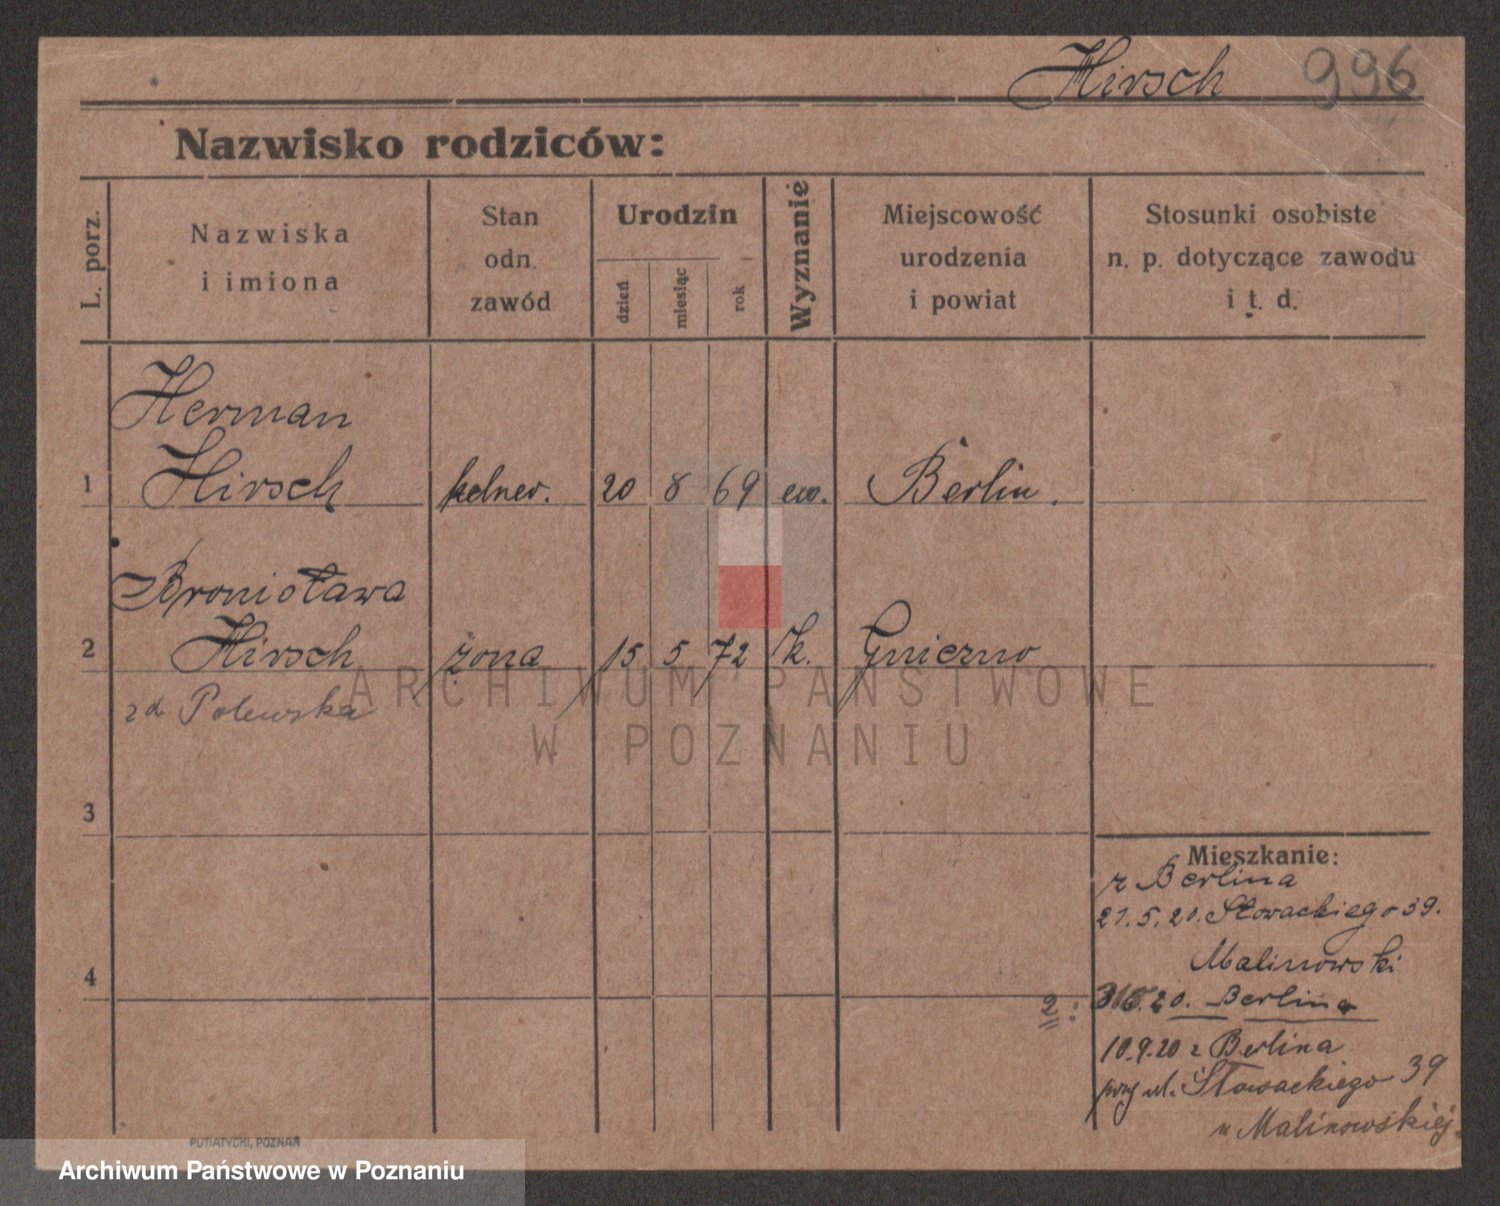 Hirsch 996
Nazwisko rodziców:
L. porz.
Nazwiska
i imiona
Stan
odn.
zawód
Urodzin
dzień
miesiąc
rok
Wyznanie
Miejscowość
urodzenia
i powiat
Stosunki osobiste
n. p. dotyczące zawodu
i t. d.
Herman
1 Hirsch kelner. 20 8 69 ew. Berlin.
Bronisława
2 Hirsch żona 15 5 72 k. Gniezno
z d. Polewska
ARCHIWUM PAŃSTWOWE
W POZNANIU
3
4
Mieszkanie:
z Berlina
21.5.20. Słowackiego 39.
Malinowski
2: 20. Berlina
10.9.20 z Berlina
przy ul. Słowackiego 39
u Malinowskiej.
PUTIATYCKI, POZNAŃ
Archiwum Państwowe w Poznaniu